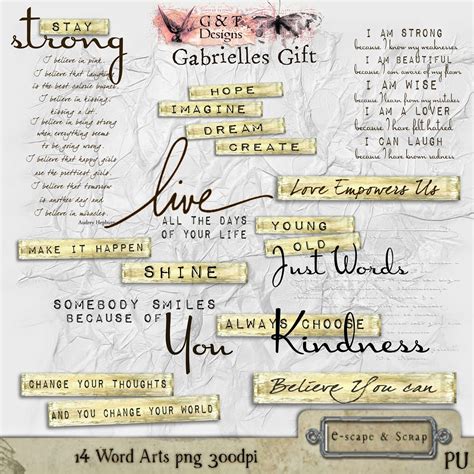 STAY
strong
I believe in pink.
I believe that laughing
is the best calorie burner.
I believe in kissing,
kissing a lot.
I believe in being strong
when everything seems
to be going wrong.
I believe that happy girls
are the prettiest girls.
I believe that tomorrow
is another day and
I believe in miracles.
Audrey Hepburn
G & T
Designs
Gabrielles Gift
HOPE
IMAGINE
DREAM
CREATE
I AM STRONG
because I know my weaknesses
I AM BEAUTIFUL
because I am aware of my flaws
I AM WISE
because I learn from my mistakes
I AM A LOVER
because I have felt hatred
I CAN LAUGH
because I have known sadness
live
ALL THE DAYS
OF YOUR LIFE
Love Empowers Us
MAKE IT HAPPEN
SHINE
YOUNG
OLD
Just Words
SOMEBODY SMILES
BECAUSE OF
You
ALWAYS CHOOSE
Kindness
CHANGE YOUR THOUGHTS
AND YOU CHANGE YOUR WORLD
Believe You can
14 Word Arts png 300dpi
E-scape & Scrap
PU